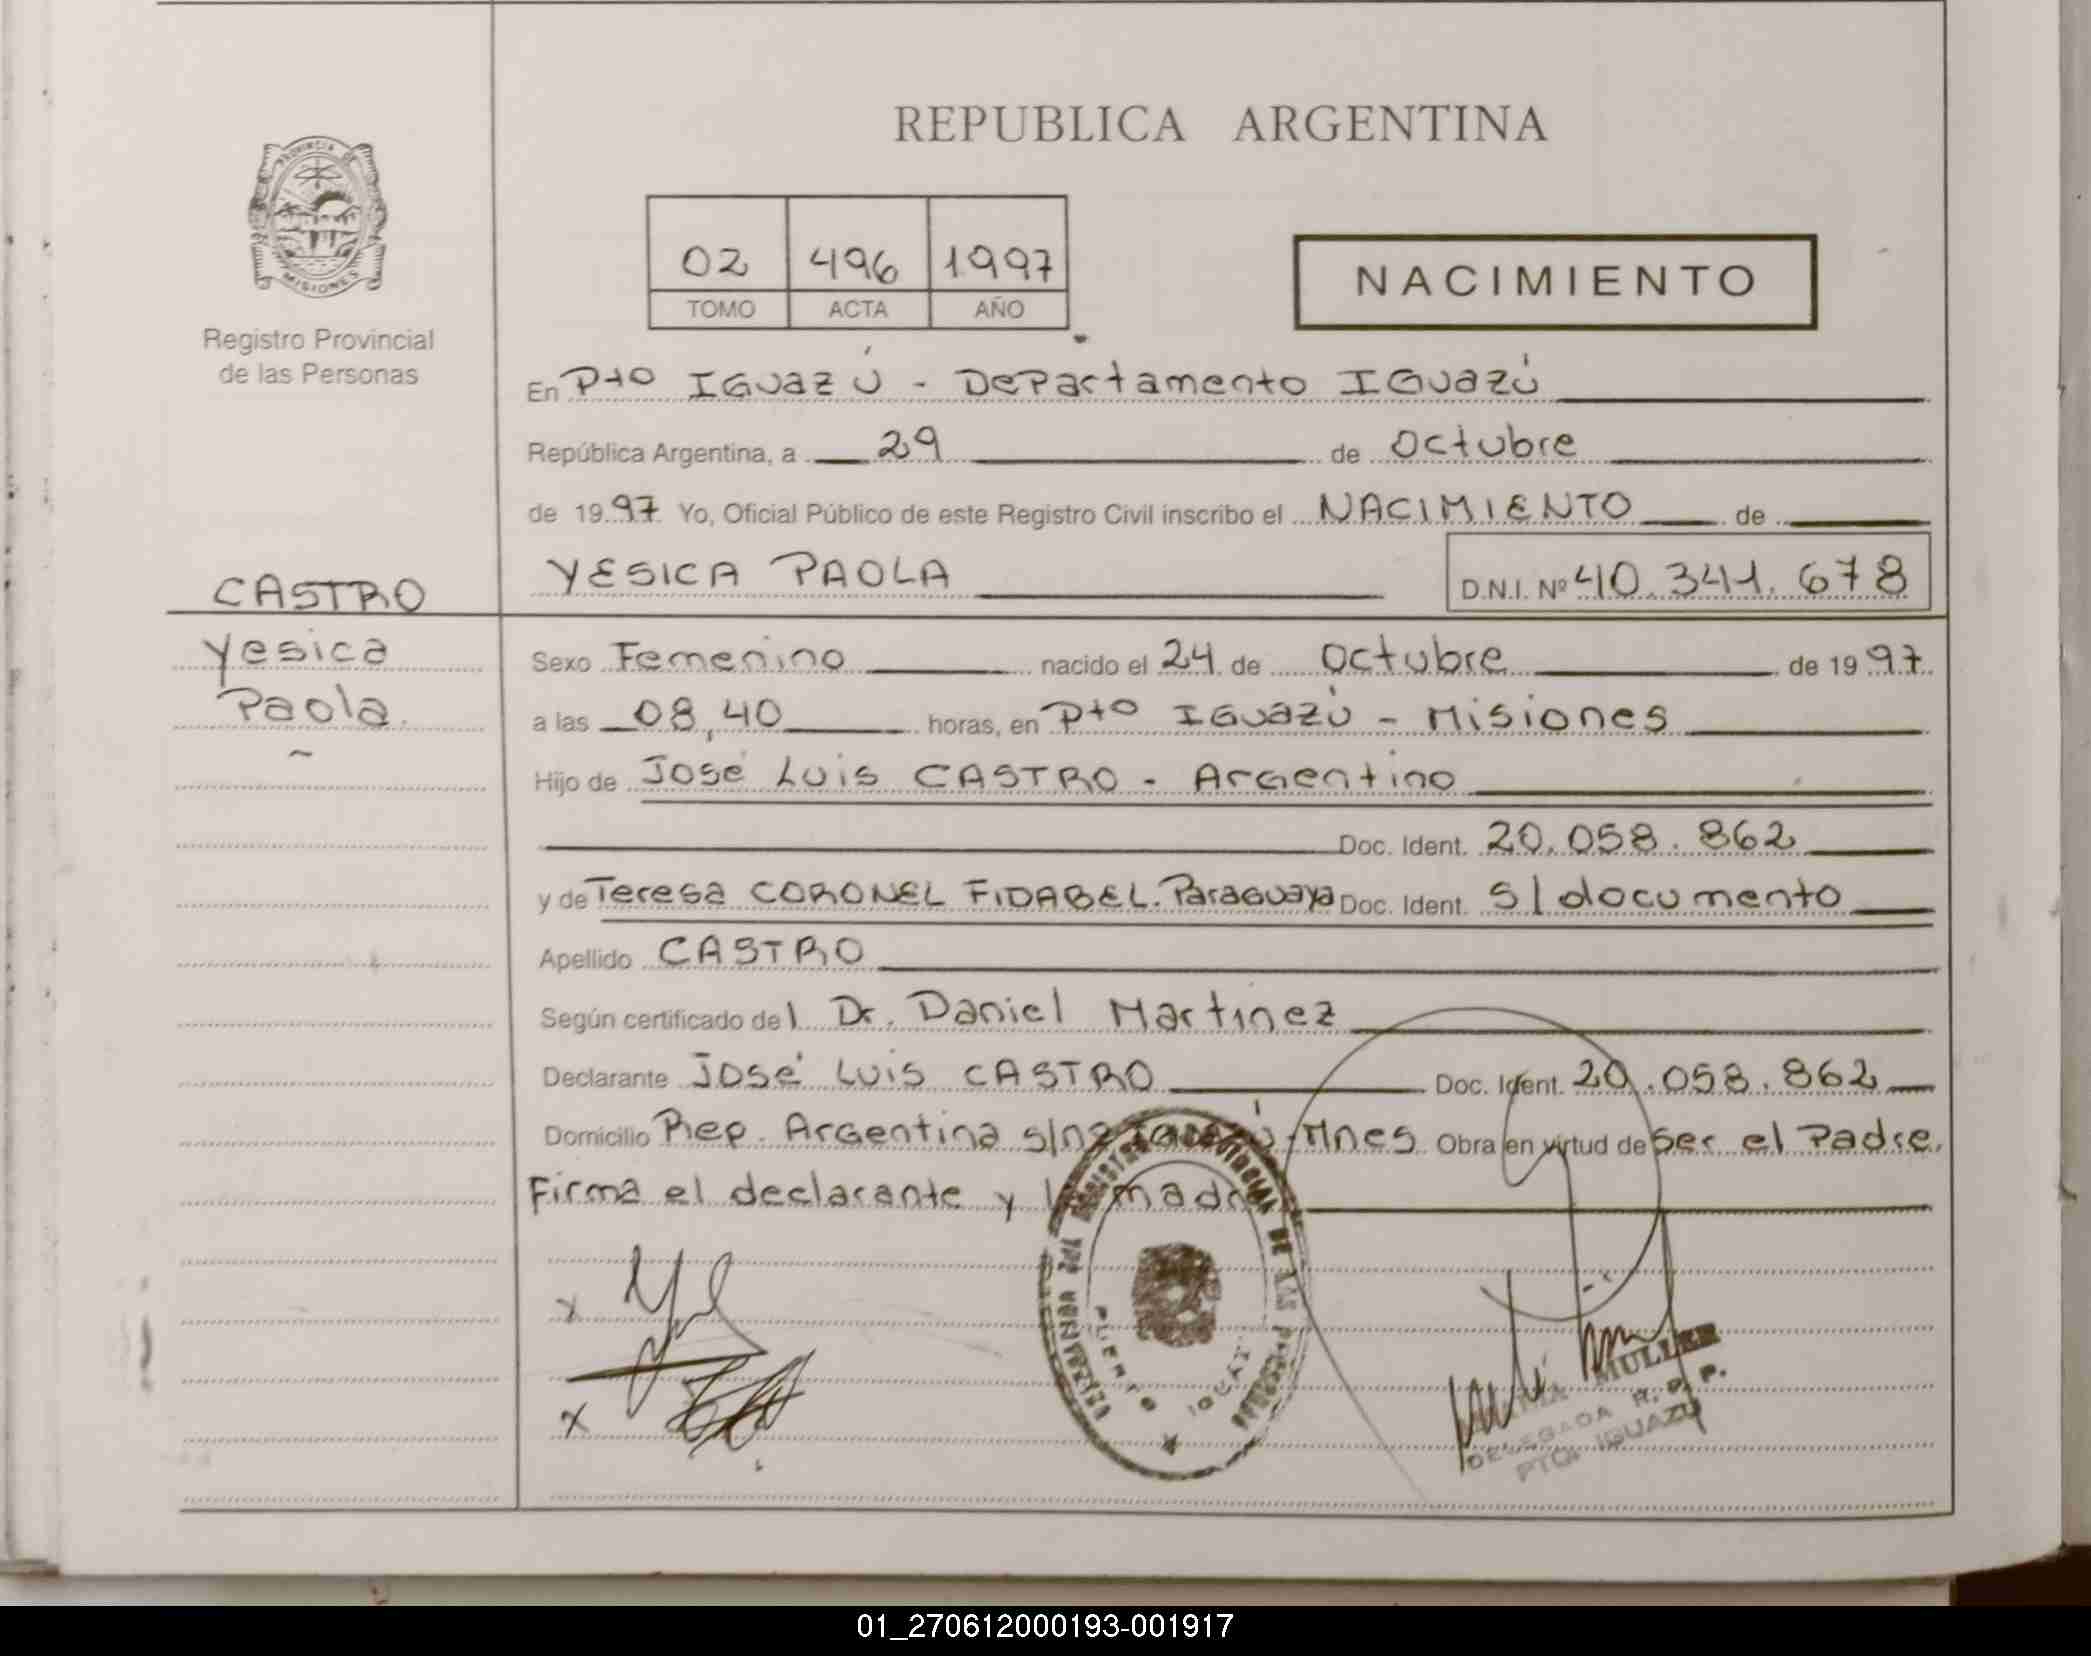 REPUBLICA ARGENTINA
PROVINCIA DE
MISIONES
Registro Provincial
de las Personas
02 496 1997
TOMO ACTA AÑO
NACIMIENTO
En Pto IGuazú - DePartamento IGuazú
República Argentina, a 29 de Octubre
de 1997 Yo, Oficial Público de este Registro Civil inscribo el NACIMIENTO de
YESICA PAOLA D.N.I. Nº 40.341.678
CASTRO
Yesica
Paola.
Sexo Femenino nacido el 24 de Octubre de 1997
a las 08,40 horas, en Pto IGuazú - Misiones
Hijo de José Luis CASTRO - Argentino
Doc. Ident. 20.058.862
y de Teresa CORONEL FIDABEL. Paraguaya Doc. Ident. s/documento
Apellido CASTRO
Según certificado del Dr. Daniel Martinez
Declarante José Luis CASTRO Doc. Ident. 20.058.862
Domicilio Rep. Argentina s/nº Iguazú-Mnes Obra en virtud de ser el Padre.
Firma el declarante y la madre
x
x
REGISTRO PROVINCIAL DE LAS PERSONAS
PUERTO IGUAZU
MULLER
DELEGADA R. P. P.
PTO. IGUAZU
01_270612000193-001917